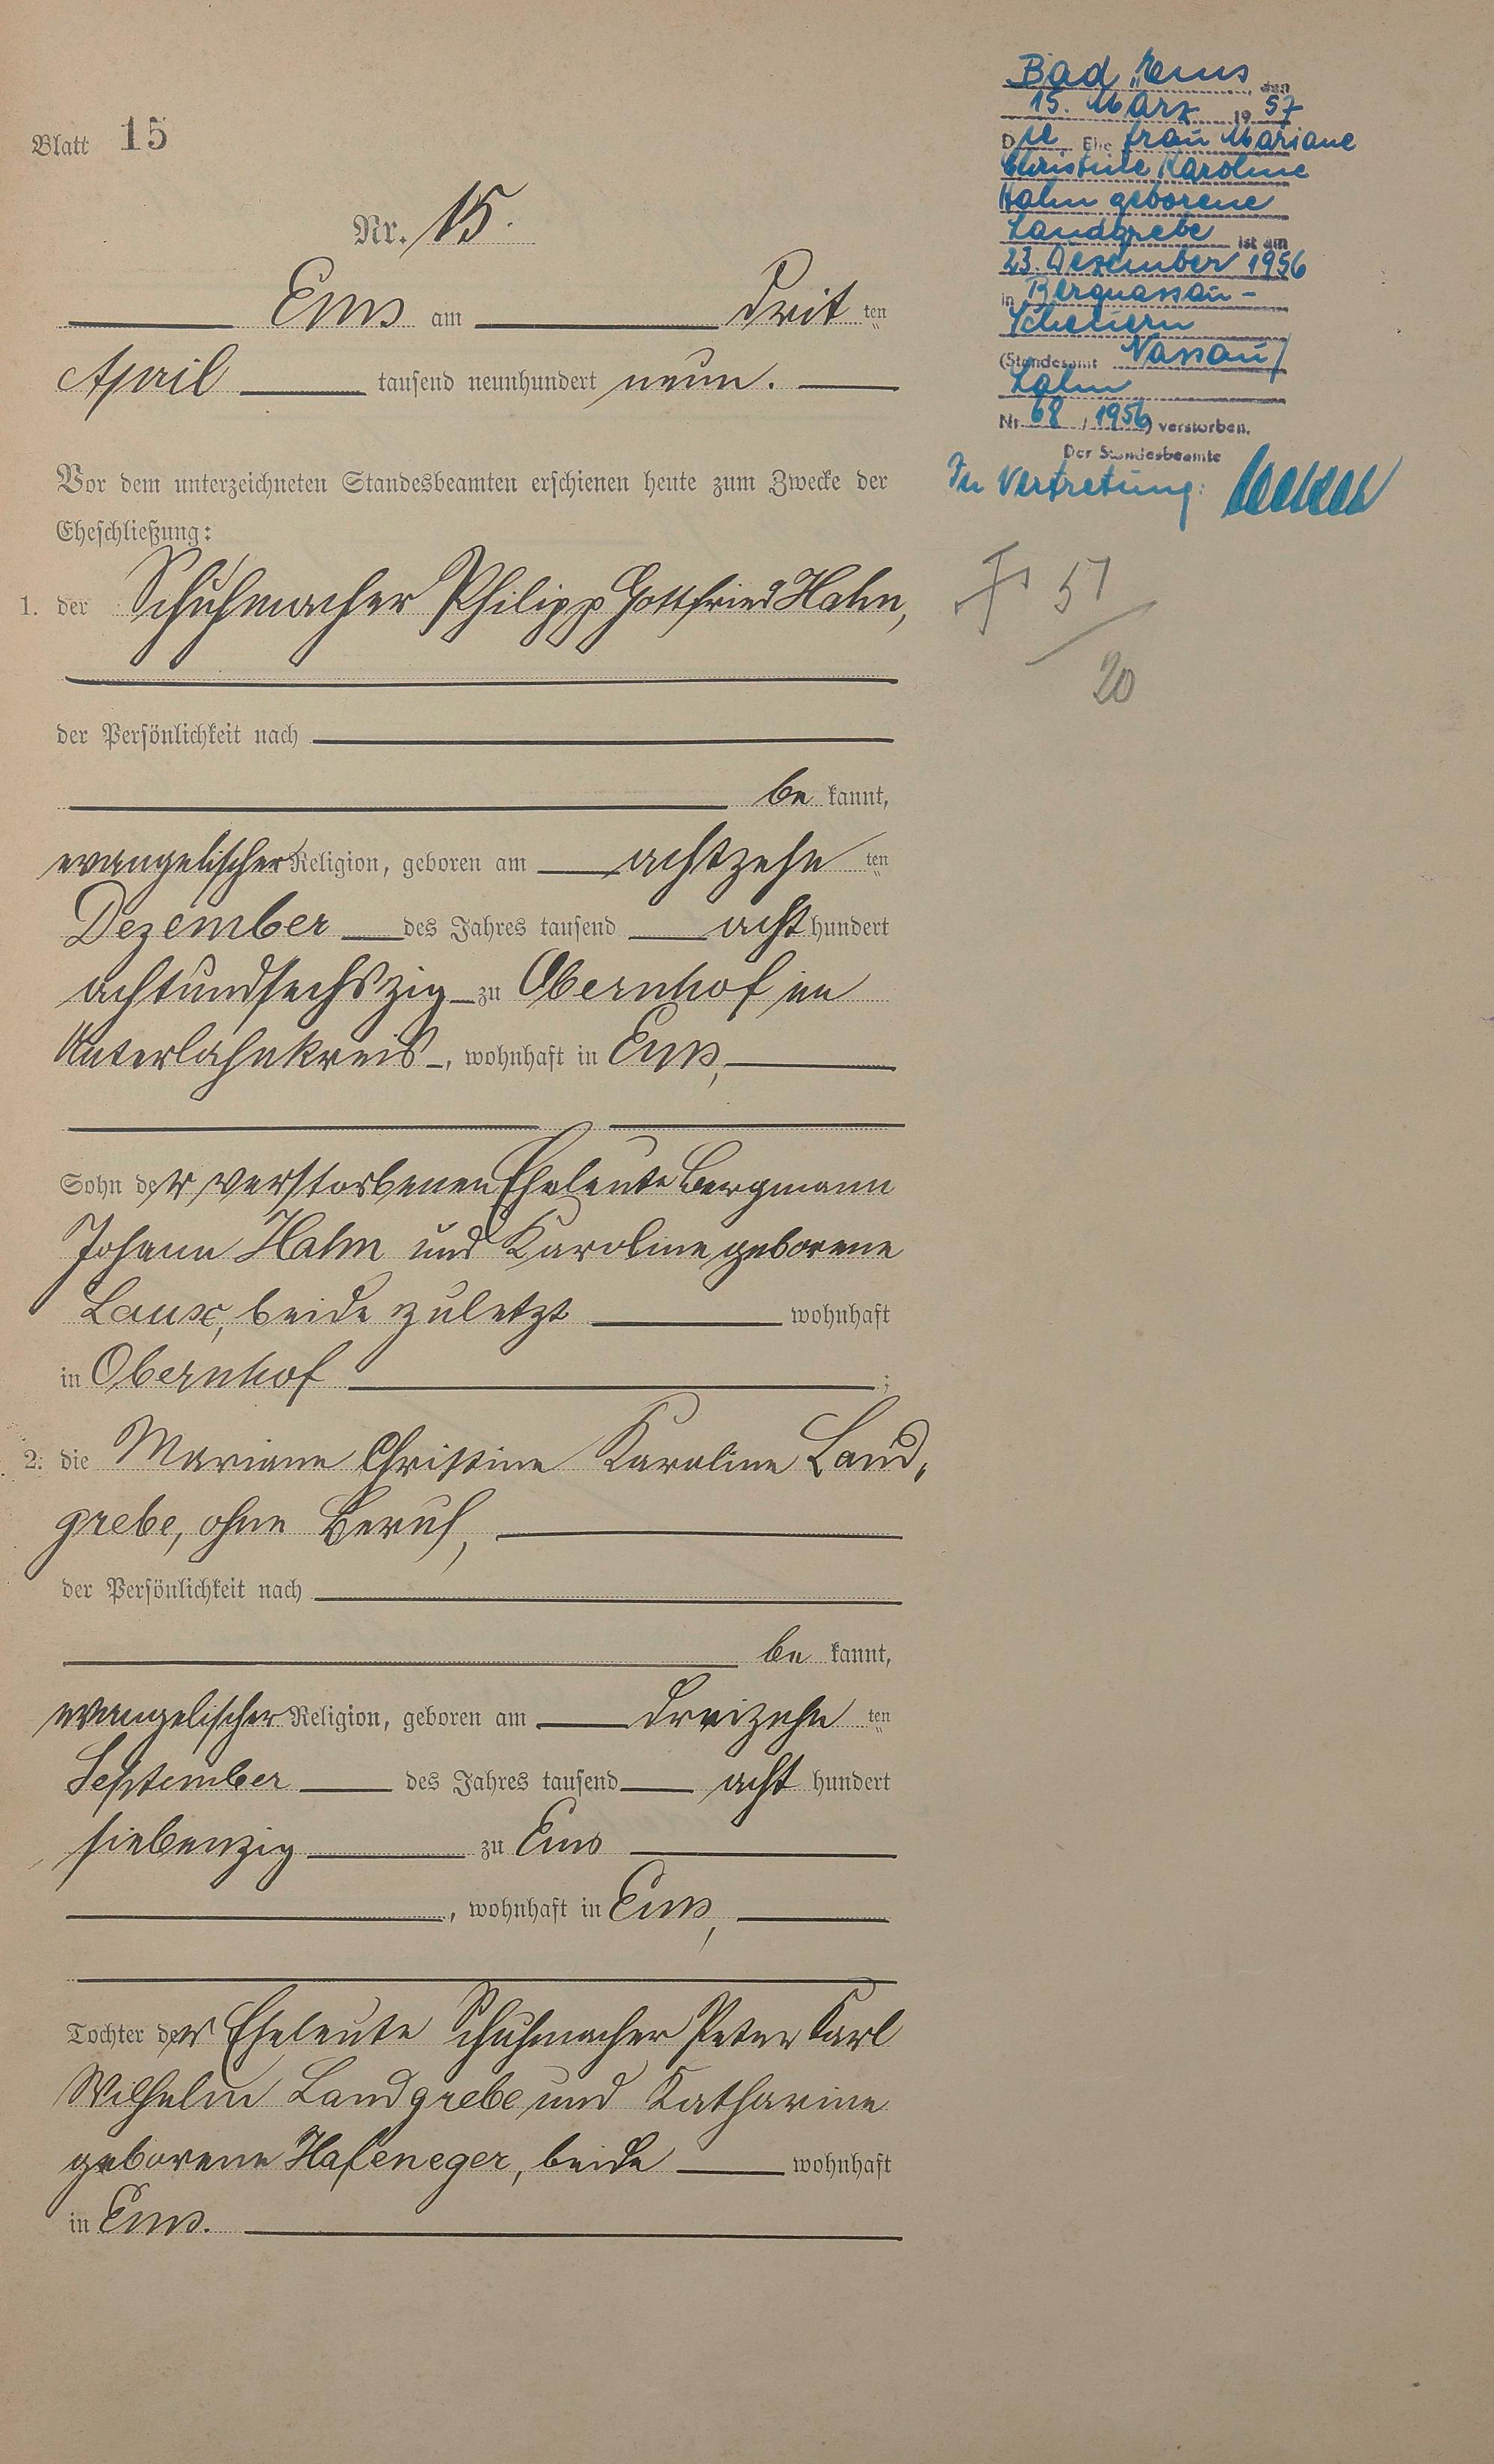 Blatt 15
Nr. 15.
Ems am dritten
April tausend neunhundert neun.
Vor dem unterzeichneten Standesbeamten erschienen heute zum Zwecke der
Eheschließung:
1. der Schuhmacher Philipp Gottfried Hahn,
der Persönlichkeit nach
be kannt,
evangelischer Religion, geboren am achtzehn ten
Dezember des Jahres tausend acht hundert
achtundsechszig zu Obernhof im
Unterlahnkreis, wohnhaft in Ems,
Sohn der verstorbenen Eheleute Bergmann
Johann Hahn und Karoline geborene
Laux, beide zuletzt wohnhaft
in Obernhof ;
2. die Mariane Christine Karoline Land-
grebe, ohne Beruf,
der Persönlichkeit nach
be kannt,
evangelischer Religion, geboren am dreizehn ten
September des Jahres tausend acht hundert
siebenzig zu Ems
, wohnhaft in Ems,
Tochter der Eheleute Schuhmacher Peter Karl
Wilhelm Landgrebe und Katharine
geborene Hafeneger, beide wohnhaft
in Ems.
Bad Ems, den
15. März 1957
Die Ehefrau Mariane
Christine Karoline
Hahn geborene
Landgrebe ist am
23. Dezember 1956
in Bergnassau-
Scheuern
(Standesamt Nassau/
Lahn
Nr. 68 / 1956) verstorben.
Der Standesbeamte
In Vertretung:
51
20